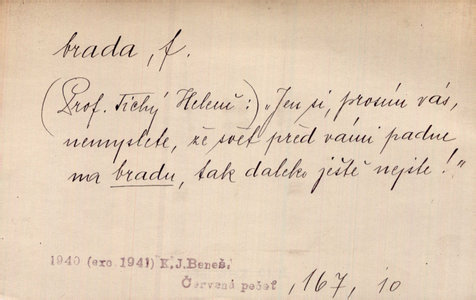 brada, f.
(Prof. Tichý Heleně:) „Jen si, prosím vás,
nemyslete, že svět před vámi padne
na bradu, tak daleko ještě nejste!"
1940 (exc. 1941) K.J.Beneš,
Červená pečeť, 167, 10